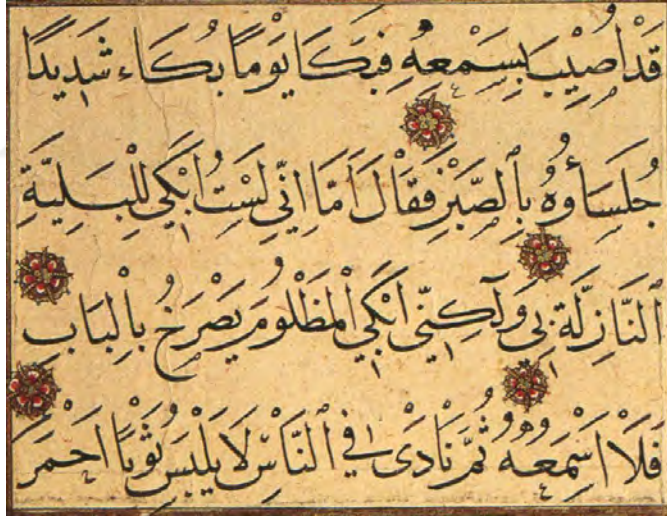 قَدْ اُصِيْبَ بِسَمْعِهِ فَبَكَا يَوْمًا بُكَاء شَدِيْدًا
جُلَسَأوُهُ بِالصَّبْرِ فَقَالَ اَمَّا اِنِّي لَسْتُ اَبْكِي لِلْبَلِيَّةِ
ٱلنَّازِلَةِ بِي وَلَٰكِنِّي اَبْكِي اَلْمَظْلُومَ يَصْرَخُ بِالْبَابِ
فَلَا اَسْمَعُهُ ثُمَّ نَادَى فِي ٱلنَّاسِ لَا يَلْبَسْ ثَوْبًا اَحْمَرَ